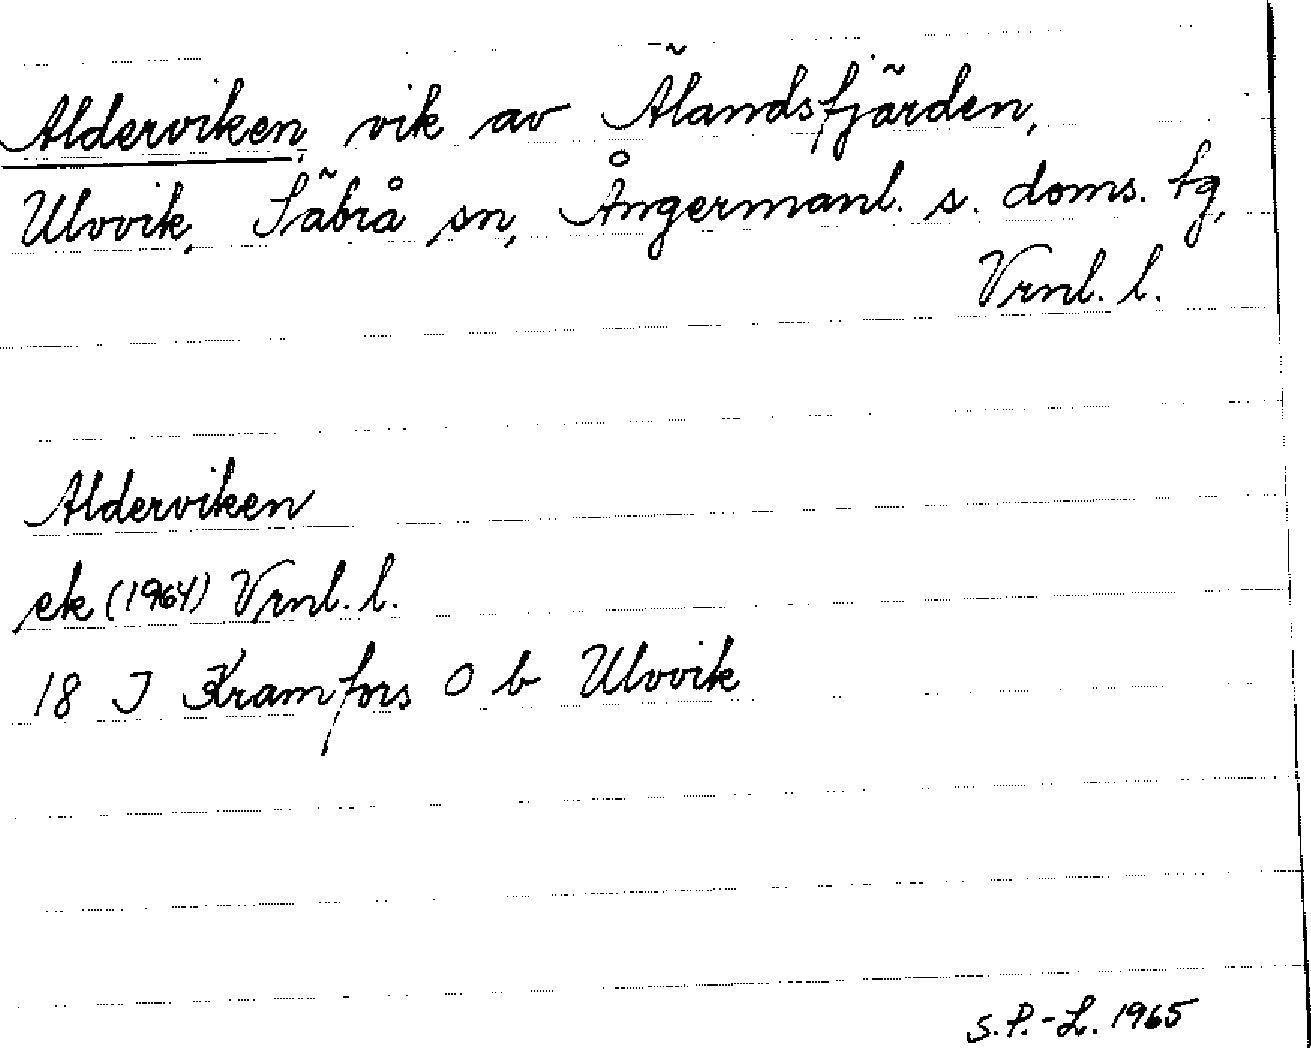 Alderviken, vik av Älandsfjärden,
Ulvvik, Säbrå sn, Ångermanl. s. doms. tg,
Vrnl. l.
Alderviken
ek (1964) Vrnl. l.
18 J Kramfors O b Ulvvik
S. P.-L. 1965